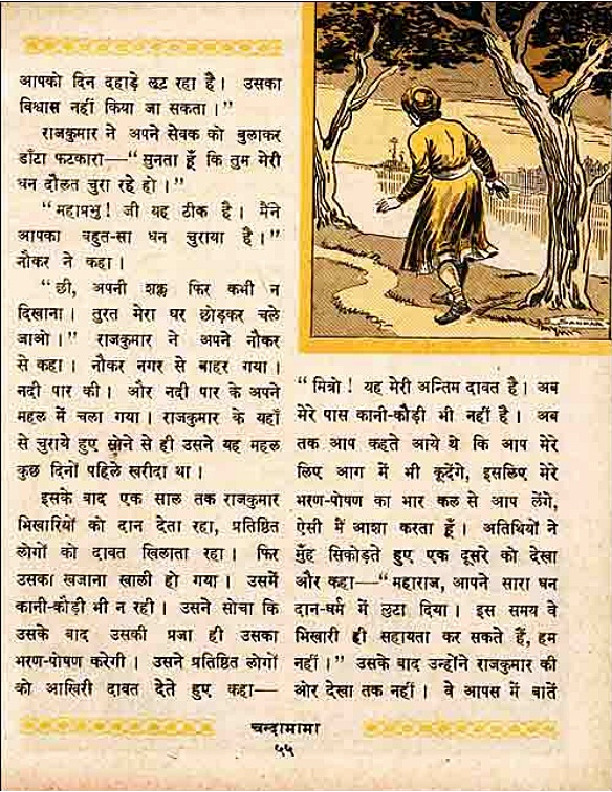 आपको दिन दहाड़े लूट रहा है। उसका
विश्वास नहीं किया जा सकता।"
राजकुमार ने अपने सेवक को बुलाकर
डाँटा फटकारा—"सुनता हूँ कि तुम मेरी
धन दौलत चुरा रहे हो।"
"महाप्रभु! जी यह ठीक है। मैंने
आपका बहुत-सा धन चुराया है।"
नौकर ने कहा।
"छी, अपनी शक्ल फिर कभी न
दिखाना। तुरत मेरा घर छोड़कर चले
जाओ।" राजकुमार ने अपने नौकर
से कहा। नौकर नगर से बाहर गया।
नदी पार की। और नदी पार के अपने
महल में चला गया। राजकुमार के यहाँ
से चुराये हुए सोने से ही उसने यह महल
कुछ दिनों पहिले खरीदा था।
इसके बाद एक साल तक राजकुमार
भिखारियों को दान देता रहा, प्रतिष्ठित
लोगों को दावत खिलाता रहा। फिर
उसका खजाना खाली हो गया। उसमें
कानी-कौड़ी भी न रही। उसने सोचा कि
उसके बाद उसकी प्रजा ही उसका
भरण-पोषण करेगी। उसने प्रतिष्ठित लोगों
को आखिरी दावत देते हुए कहा—
"मित्रो! यह मेरी अन्तिम दावत है। अब
मेरे पास कानी-कौड़ी भी नहीं है। अब
तक आप कहते आये थे कि आप मेरे
लिए आग में भी कूदेंगे, इसलिए मेरे
भरण-पोषण का भार कल से आप लेंगे,
ऐसी मैं आशा करता हूँ। अतिथियों ने
मुँह सिकोड़ते हुए एक दूसरे को देखा
और कहा—"महाराज, आपने सारा धन
दान-धर्म में लुटा दिया। इस समय वे
भिखारी ही सहायता कर सकते हैं, हम
नहीं।" उसके बाद उन्होंने राजकुमार की
ओर देखा तक नहीं। वे आपस में बातें
चन्दामामा
५५